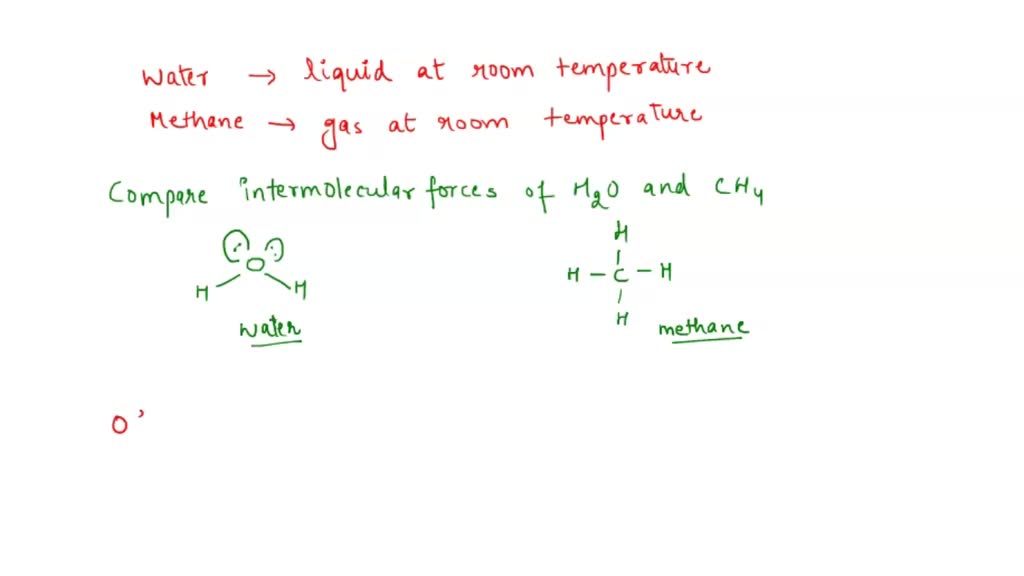 Water → liquid at room temperature
Methane → gas at room temperature
Compare intermolecular forces of H2O and CH4
H
O
H – C – H
H H
H
water
methane
O'